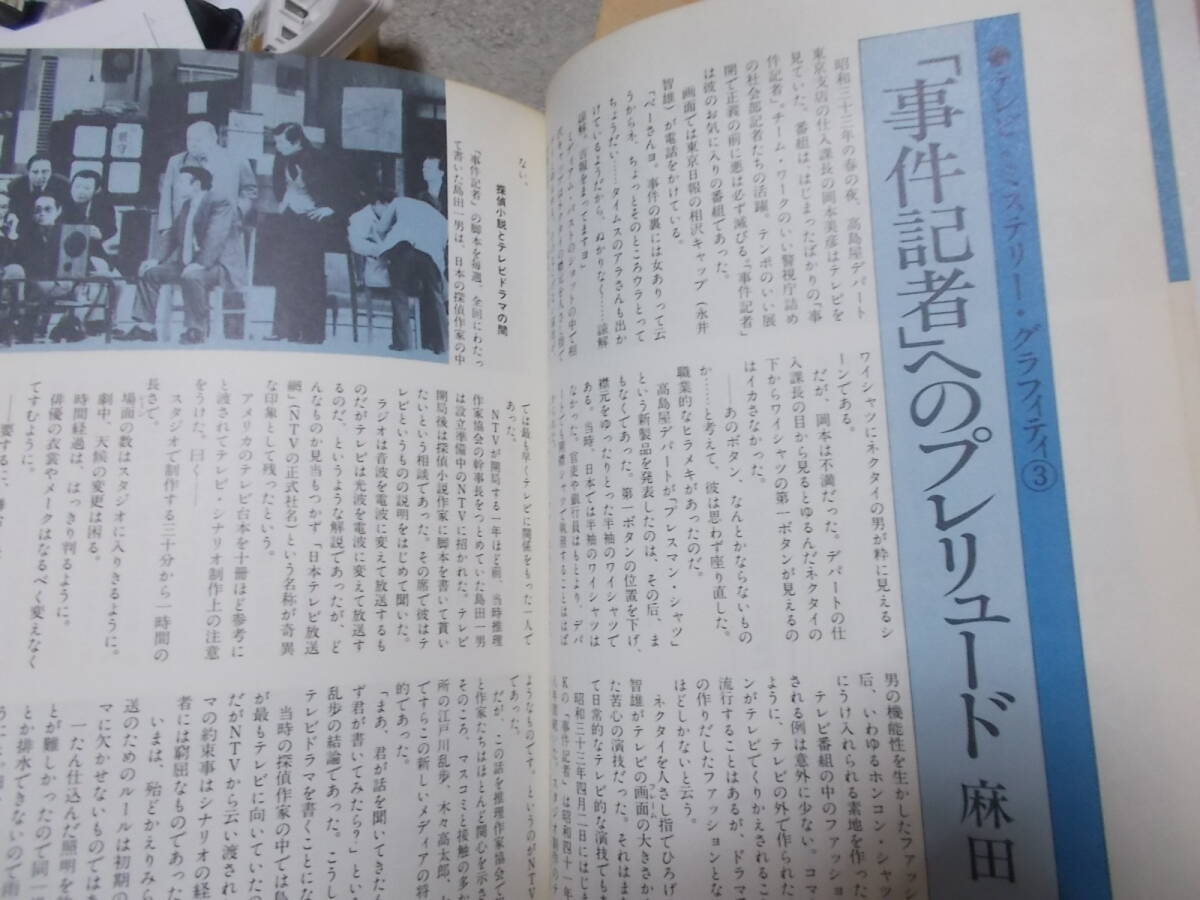 テレビ・ミステリー・グラフィティ③
「事件記者」へのプレリュード
麻田
昭和三十三年の春の夜、高島屋デパート
東京支店の仕入課長の岡本美彦はテレビを
見ていた。番組は、はじまったばかりの「事
件記者」。チーム・ワークのいい警視庁詰め
の社会部記者たちの活躍。テンポのいい展
開で正義の前に悪は必ず滅びる「事件記者」
は彼のお気に入りの番組であった。
画面では東京日報の相沢キャップ(永井
智雄)が電話をかけている。
「ベーさんョ。事件の裏には女ありって云
うからネ、ちょっとそのところウラとって
ちょうだい……タイムスのアラさんも出か
けているようだから、ぬかりなく……諒解
諒解、吉報をまってますョ」
ワイシャツにネクタイの男が粋に見えるシ
ーンである。
だが、岡本は不満だった。デパートの仕
入課長の目から見るとゆるんだネクタイの
下からワイシャツの第一ボタンが見えるの
はイカさなかった。
――あのボタン、なんとかならないもの
か……と考えて、彼は思わず座り直した。
職業的なヒラメキがあったのだ。
高島屋デパートが「プレスマン・シャツ」
という新製品を発表したのは、その后、ま
もなくであった。第一ボタンの位置を下げ、
襟元をゆったりとった半袖のワイシャツで
ある。当時、日本では半袖のワイシャツは
なかった。官吏や銀行員はもとより、デパ
男の機能性を生かしたファッシ
后、いわゆるホンコン・シャツ
にうけ入れられる素地を作った
テレビ番組の中のファッショ
される例は意外に少ない。コマ
ように、テレビの外で作られた
ンがテレビでくりかえされるこ
流行することはあるが、ドラマ
の作りだしたファッションとな
はどしかないと云う。
ネクタイを人さし指でひろげ
智雄がテレビの画面の大きさか
フレーム
た苦心の演技だった。それはま
て日常的なテレビ的な演技でもあ
昭和三十三年四月二日にはじま
Kの「事件記者」は昭和四十一年
ない。
探偵小説とテレビドラマの間
「事件記者」の脚本を毎週、全回にわたっ
て書いた島田一男は、日本の探偵作家の中
では最も早くテレビに関係をもった一人で
あった。
NTVが開局する一年ほど前、当時推理
作家協会の幹事長をつとめていた島田一男
は設立準備中のNTVに招かれた。テレビ
開局後は探偵小説作家に脚本を書いて貰い
たいという相談であった。その席で彼はテ
レビというものの説明をはじめて聞いた。
ラジオは音波を電波に変えて放送するも
のだがテレビは光波を電波に変えて放送す
るのだ、というような解説であったが、ど
んなものか見当もつかず「日本テレビ放送
網」(NTVの正式社名)という名称が奇異
な印象として残ったという。
アメリカのテレビ台本を十冊ほど参考に
と渡されてテレビ・シナリオ制作上の注意
をうけた。曰く――
スタジオで制作する三十分から一時間の
長さで。
場面の数はスタジオに入りきるように。
劇中、天候の変更は困る。
時間経過は、はっきり判るように。
俳優の衣裳やメークはなるべく変えなく
てすむように。
ようなものです。というのがNTV
であった。
だが、この話を推理作家協会で
と作家たちはほとんど関心を示さ
そのころ、マスコミと接触の多か
所の江戸川乱歩、木々高太郎、
ですらこの新しいメディアの将
的であった。
「まあ、君が話を聞いてきたん
ず君が書いてみたら?」という
乱歩の結論であった。こうし
テレビドラマを書くことにな
当時の探偵作家の中では島
が最もテレビに向いていたの
だがNTVから云い渡され
マの約束事はシナリオの経
者には窮屈なものであった
いまは、殆どかえりみら
送のためのルールは初期の
マに欠かせないものではあ
一たん仕込んだ照明を
とが難しかったので同一
とか排水できないので雨